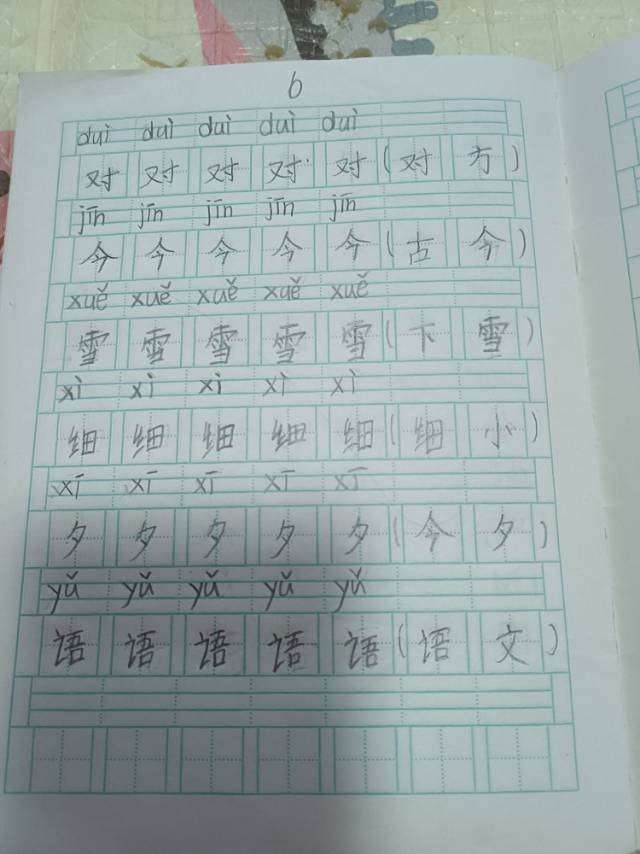 6
duì duì duì duì duì
对 对 对 对 对 ( 对 方 )
jīn jīn jīn jīn jīn
今 今 今 今 今 ( 古 今 )
xuě xuě xuě xuě xuě
雪 雪 雪 雪 雪 ( 下 雪 )
xì xì xì xì xì
细 细 细 细 细 ( 细 小 )
xī xī xī xī xī
夕 夕 夕 夕 夕 ( 今 夕 )
yǔ yǔ yǔ yǔ yǔ
语 语 语 语 语 ( 语 文 )